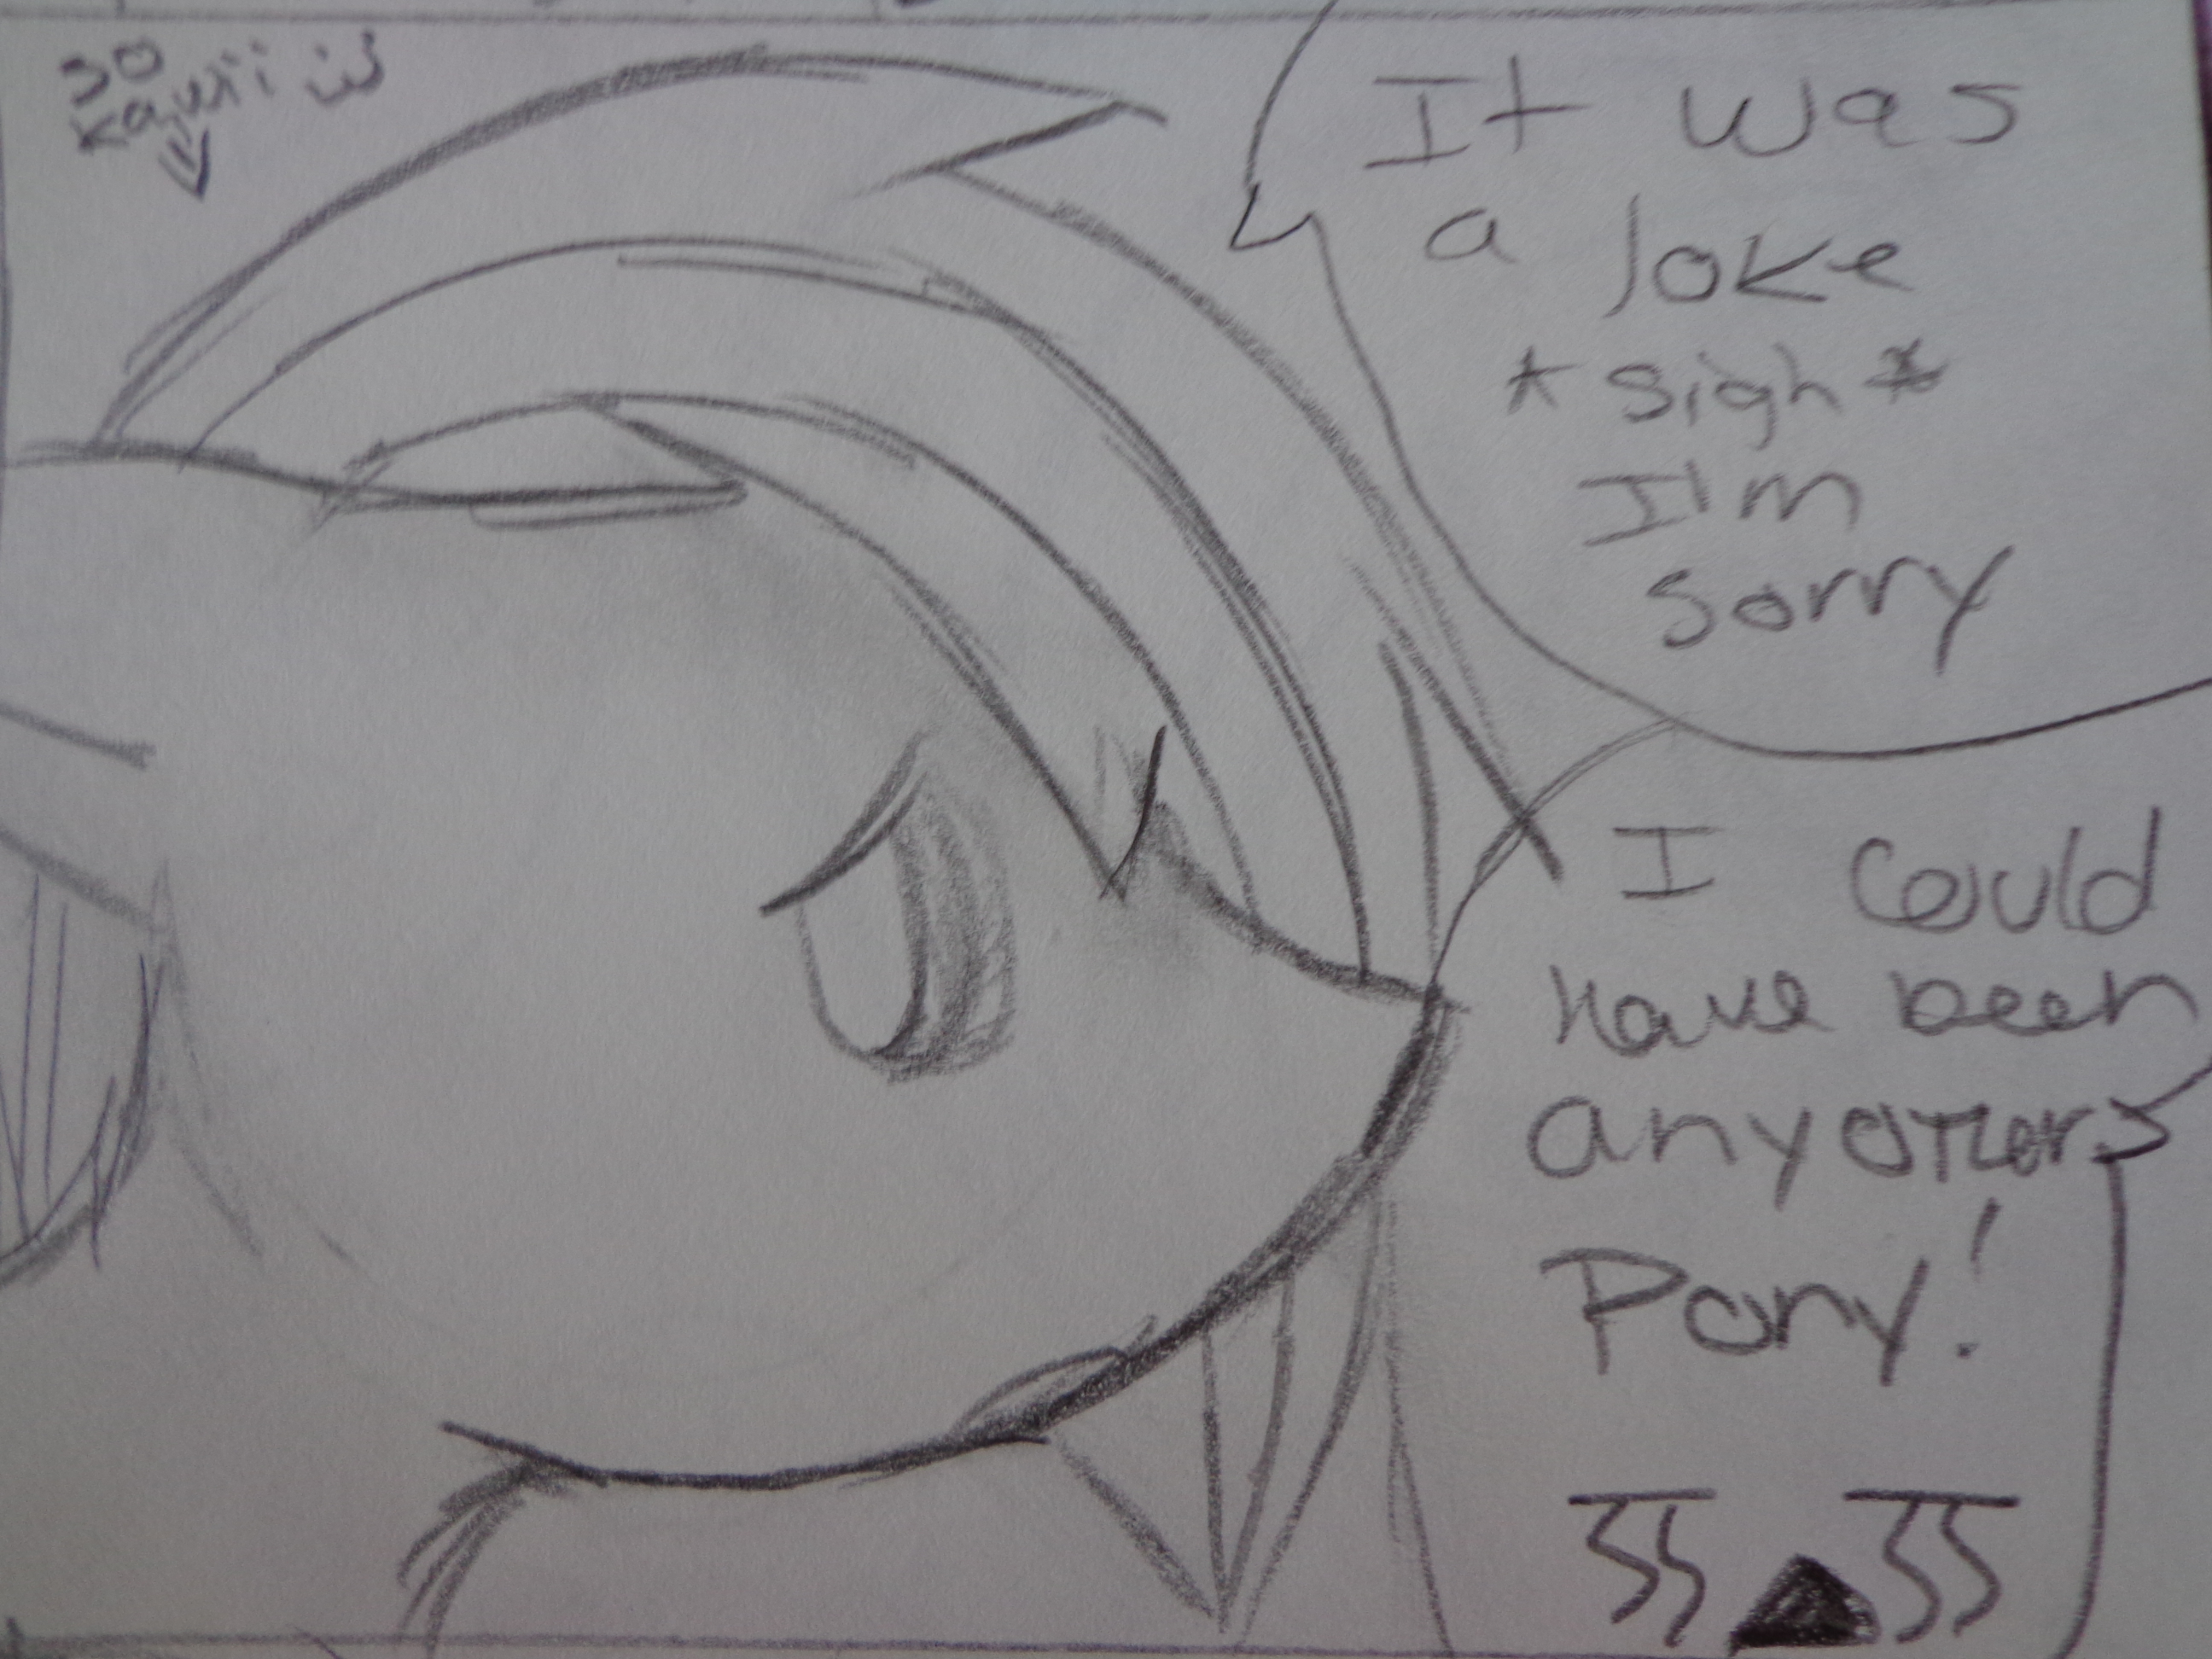 so
kawii :3
It was
a joke
*sigh*
I'm
sorry
I could
have been
any other
Pony!